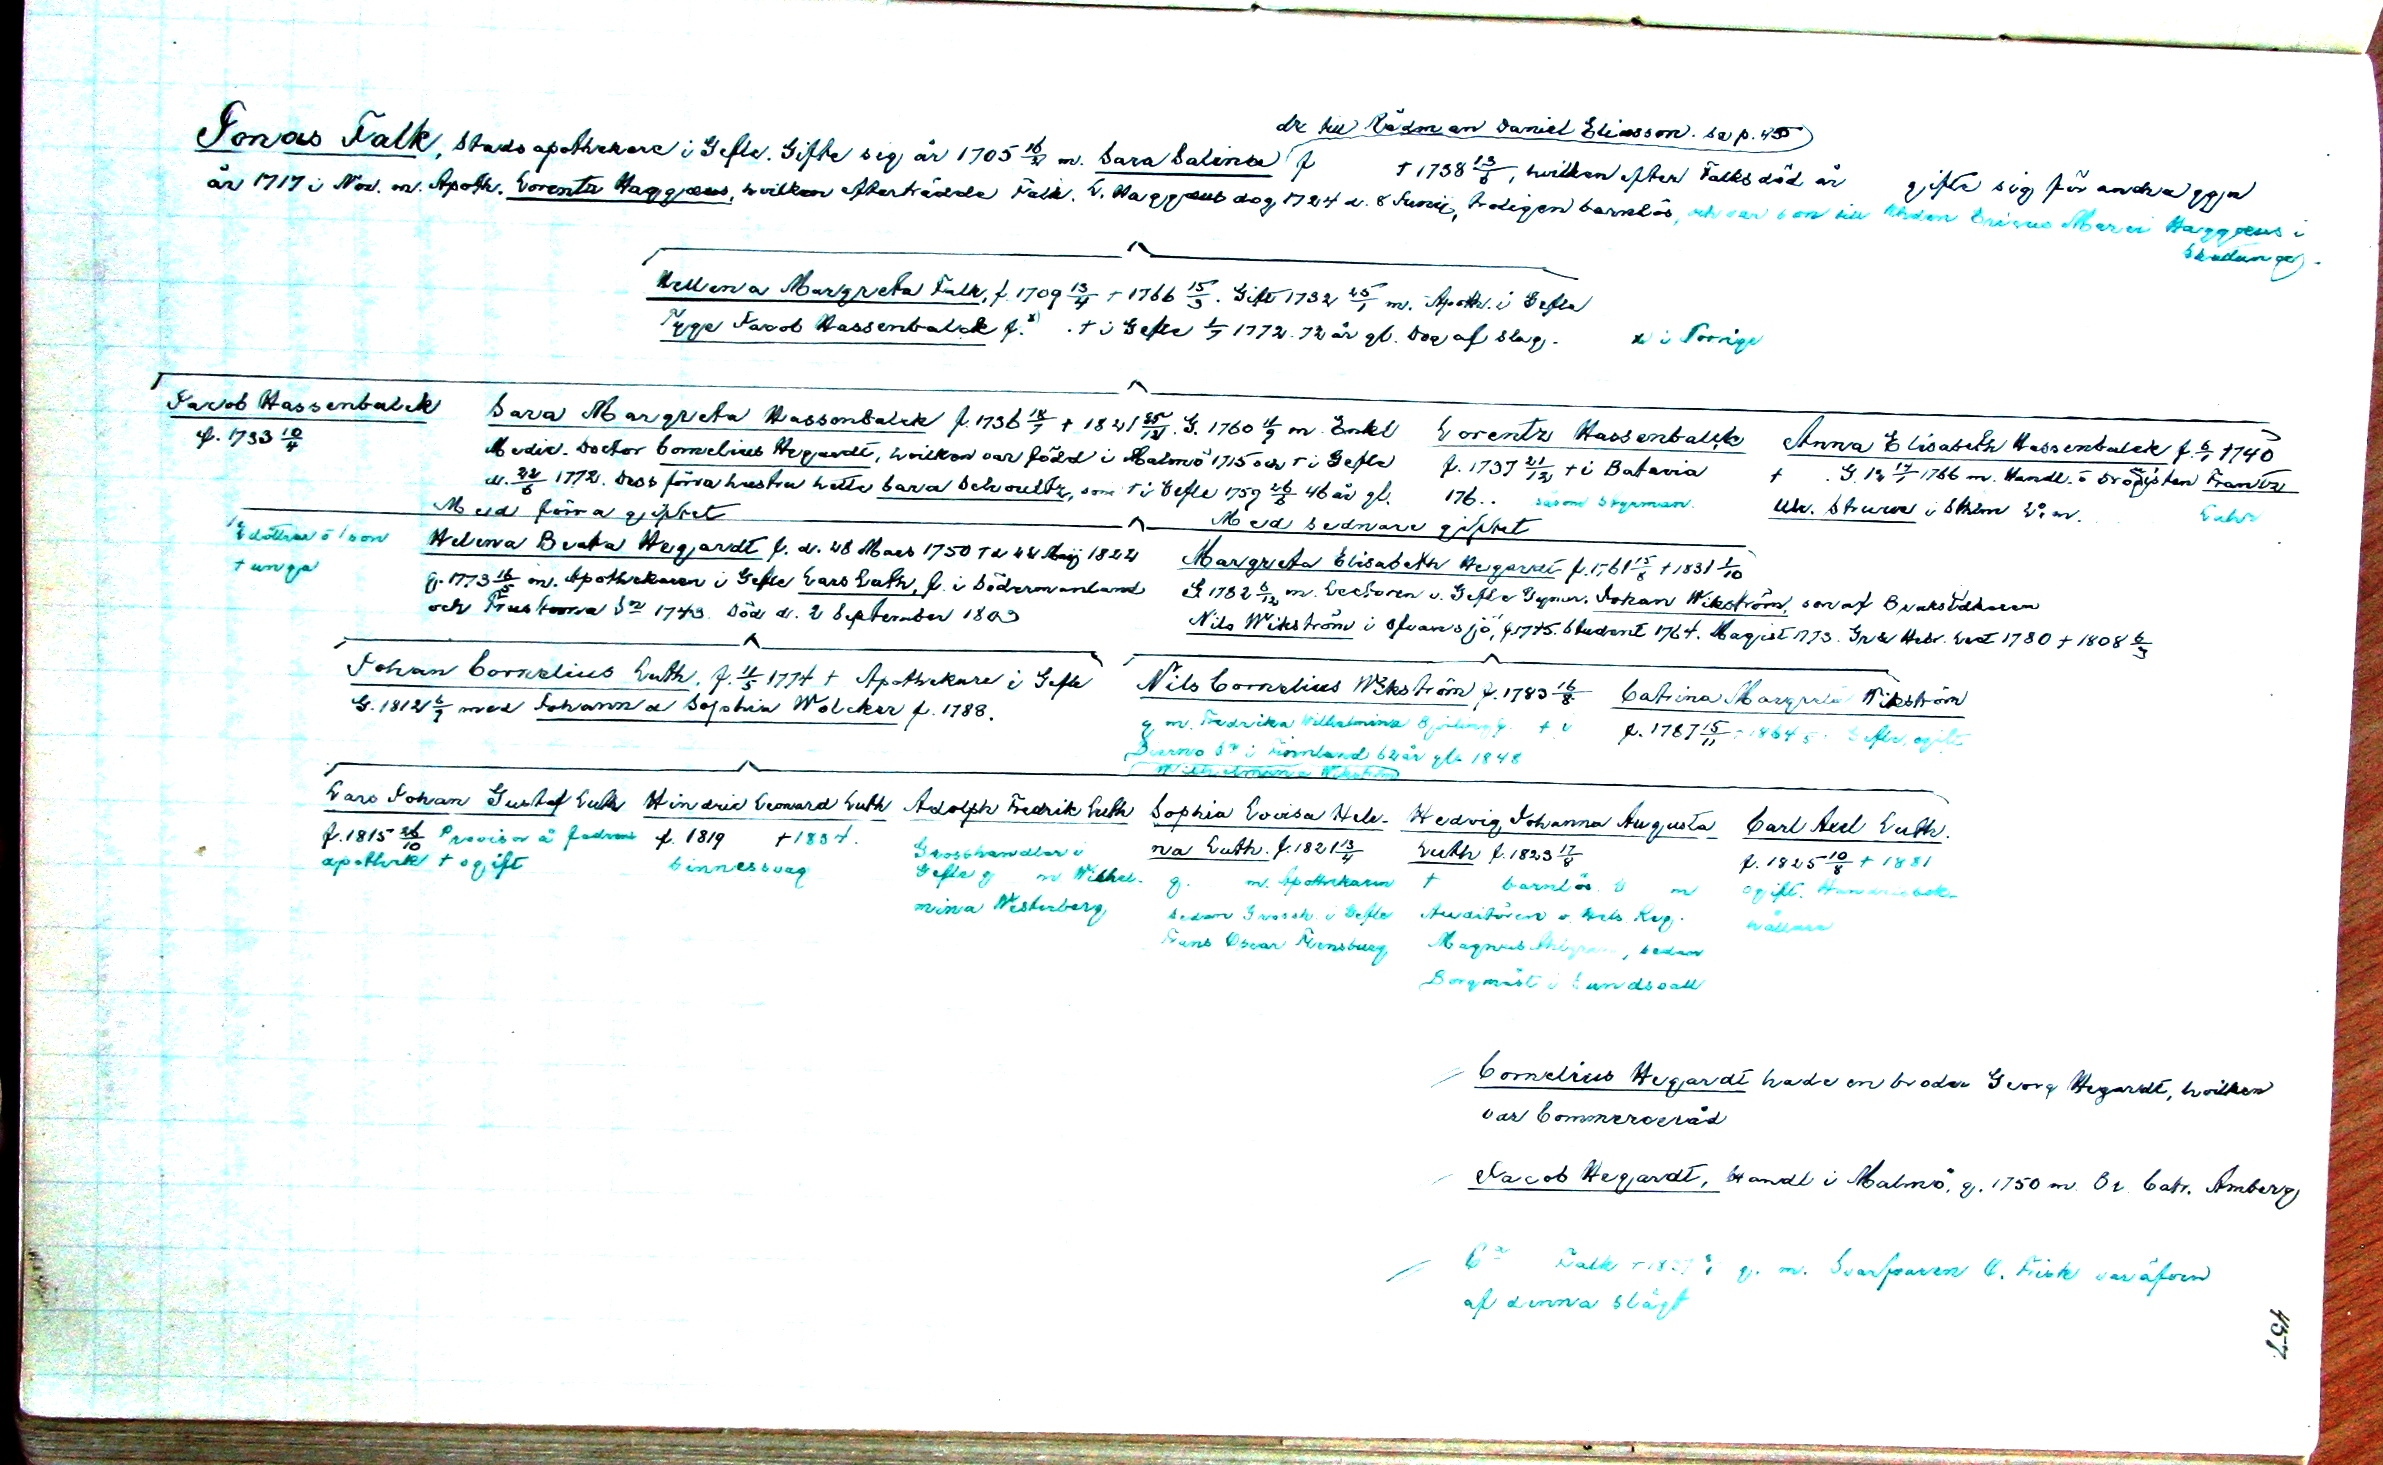 dr till Rådman Daniel Eliasson. se p. 45
Jonas Falk, Stads apothekare i Gefle. Gifte sig år 1705 16/2 m. Sara Salina f † 1738 13/6, hvilken efter Falks död år gifte sig för andra ggn
år 1717 i Nov. m. Apoth. Lorentz Haggæus, hvilken efterträdde Falk. L. Haggæus dog 1724 d. 8 Junii, troligen barnlös, och var son till Khden Ericus Marci Haggæus i
Skutunge.
Hellena Margreta Falk, f. 1709 13/4 † 1766 15/3. Gift 1732 25/1 m. Apoth. i Gefle
Tyge Jacob Hassenbalck f. x) † i Gefle 1/7 1772. 72 år gl. Dog af slag. x i Norrige
Jacob Hassenbalck
f. 1733 10/4
Sara Margreta Hassenbalck f. 1736 18/7 † 1821 25/12. G. 1760 11/9 m. Enkl
Medic. Doctor Cornelius Hegardt, hvilken var född i Malmö 1715 och † i Gefle
d. 22/6 1772. Dess förra hustru hette Sara Schoultz, som † i Gefle 1759 26/6 46 år gl.
Lorentz Hassenbalck
f. 1737 21/12 † i Batavia
176.. såsom Styrman.
Anna Elisabeth Hassenbalck f. 6/1 1740
† . G. 17/7 1766 m. Handl. o Drogisten Frantz
Ulr. Struwe i Sthlm
Med förra giftet
Med sednare giftet
2 döttrar o 1 son
† unga
Helena Beata Hegardt f. d. 28 Mars 1750 † d 22 Maij 1822
g. 1773 16/5 m. Apothekaren i Gefle Lars Luth, f. i Södermanland
och Frustuna Sn 1743. Död d. 2 September 1803
Margreta Elisabeth Hegardt f. 1761 15/8 † 1831 1/10
G 1782 6/12 m. Lectoren v. Gefle Gymn. Johan Wikström, son af Bruksidkaren
Nils Wikström i Svansjö, f. 1745. Student 1764. Magist 1773. Gr & Hebr. Lect 1780 † 1808 6/3
Johan Cornelius Luth, f. 11/5 1774 † Apothekare i Gefle
G. 1812 6/9 med Johanna Sophia Wölcker f. 1788.
Nils Cornelius Wikström f. 1783 16/8
g m. Fredrika Wilhelmina Björling f. † i
Sn i Finnland 62 år gl. 1848
Wilhelmina Wikström
Catrina Margreta Wikström
f. 1787 15/11 † 1864 Gefle, ogift
Lars Johan Gustaf Luth
f. 1815 26/10 Provisor å fadrens
apothek † ogift
Hindric Leonard Luth
f. 1819 † 1834.
Sinnessvag
Adolph Fredrik Luth
Grosshandlar i
Gefle g m Wilhel-
mina Westerberg
Sophia Lovisa Hele-
na Luth. f. 1821 13/4
g. m. Apothekaren
sedan Grossh. i Gefle
Frans Oscar Flensburg
Hedvig Johanna Augusta
Luth f. 1823 17/8
† barnlös. G m
Auditören v. Hels. Reg.
Magnus, sedan
Borgmäst i Sundsvall
Carl Axel Luth.
f. 1825 10/8 † 1881
ogift. Handelsbok-
hållare
Cornelius Hegardt hade en broder Georg Hegardt, hvilken
var Commerceråd
Jacob Hegardt, Handl i Malmö, g. 1750 m. Catr. Amberg
Falk † g. m. Svarfvaren O. Frisk var äfven
af denna slägt
457.